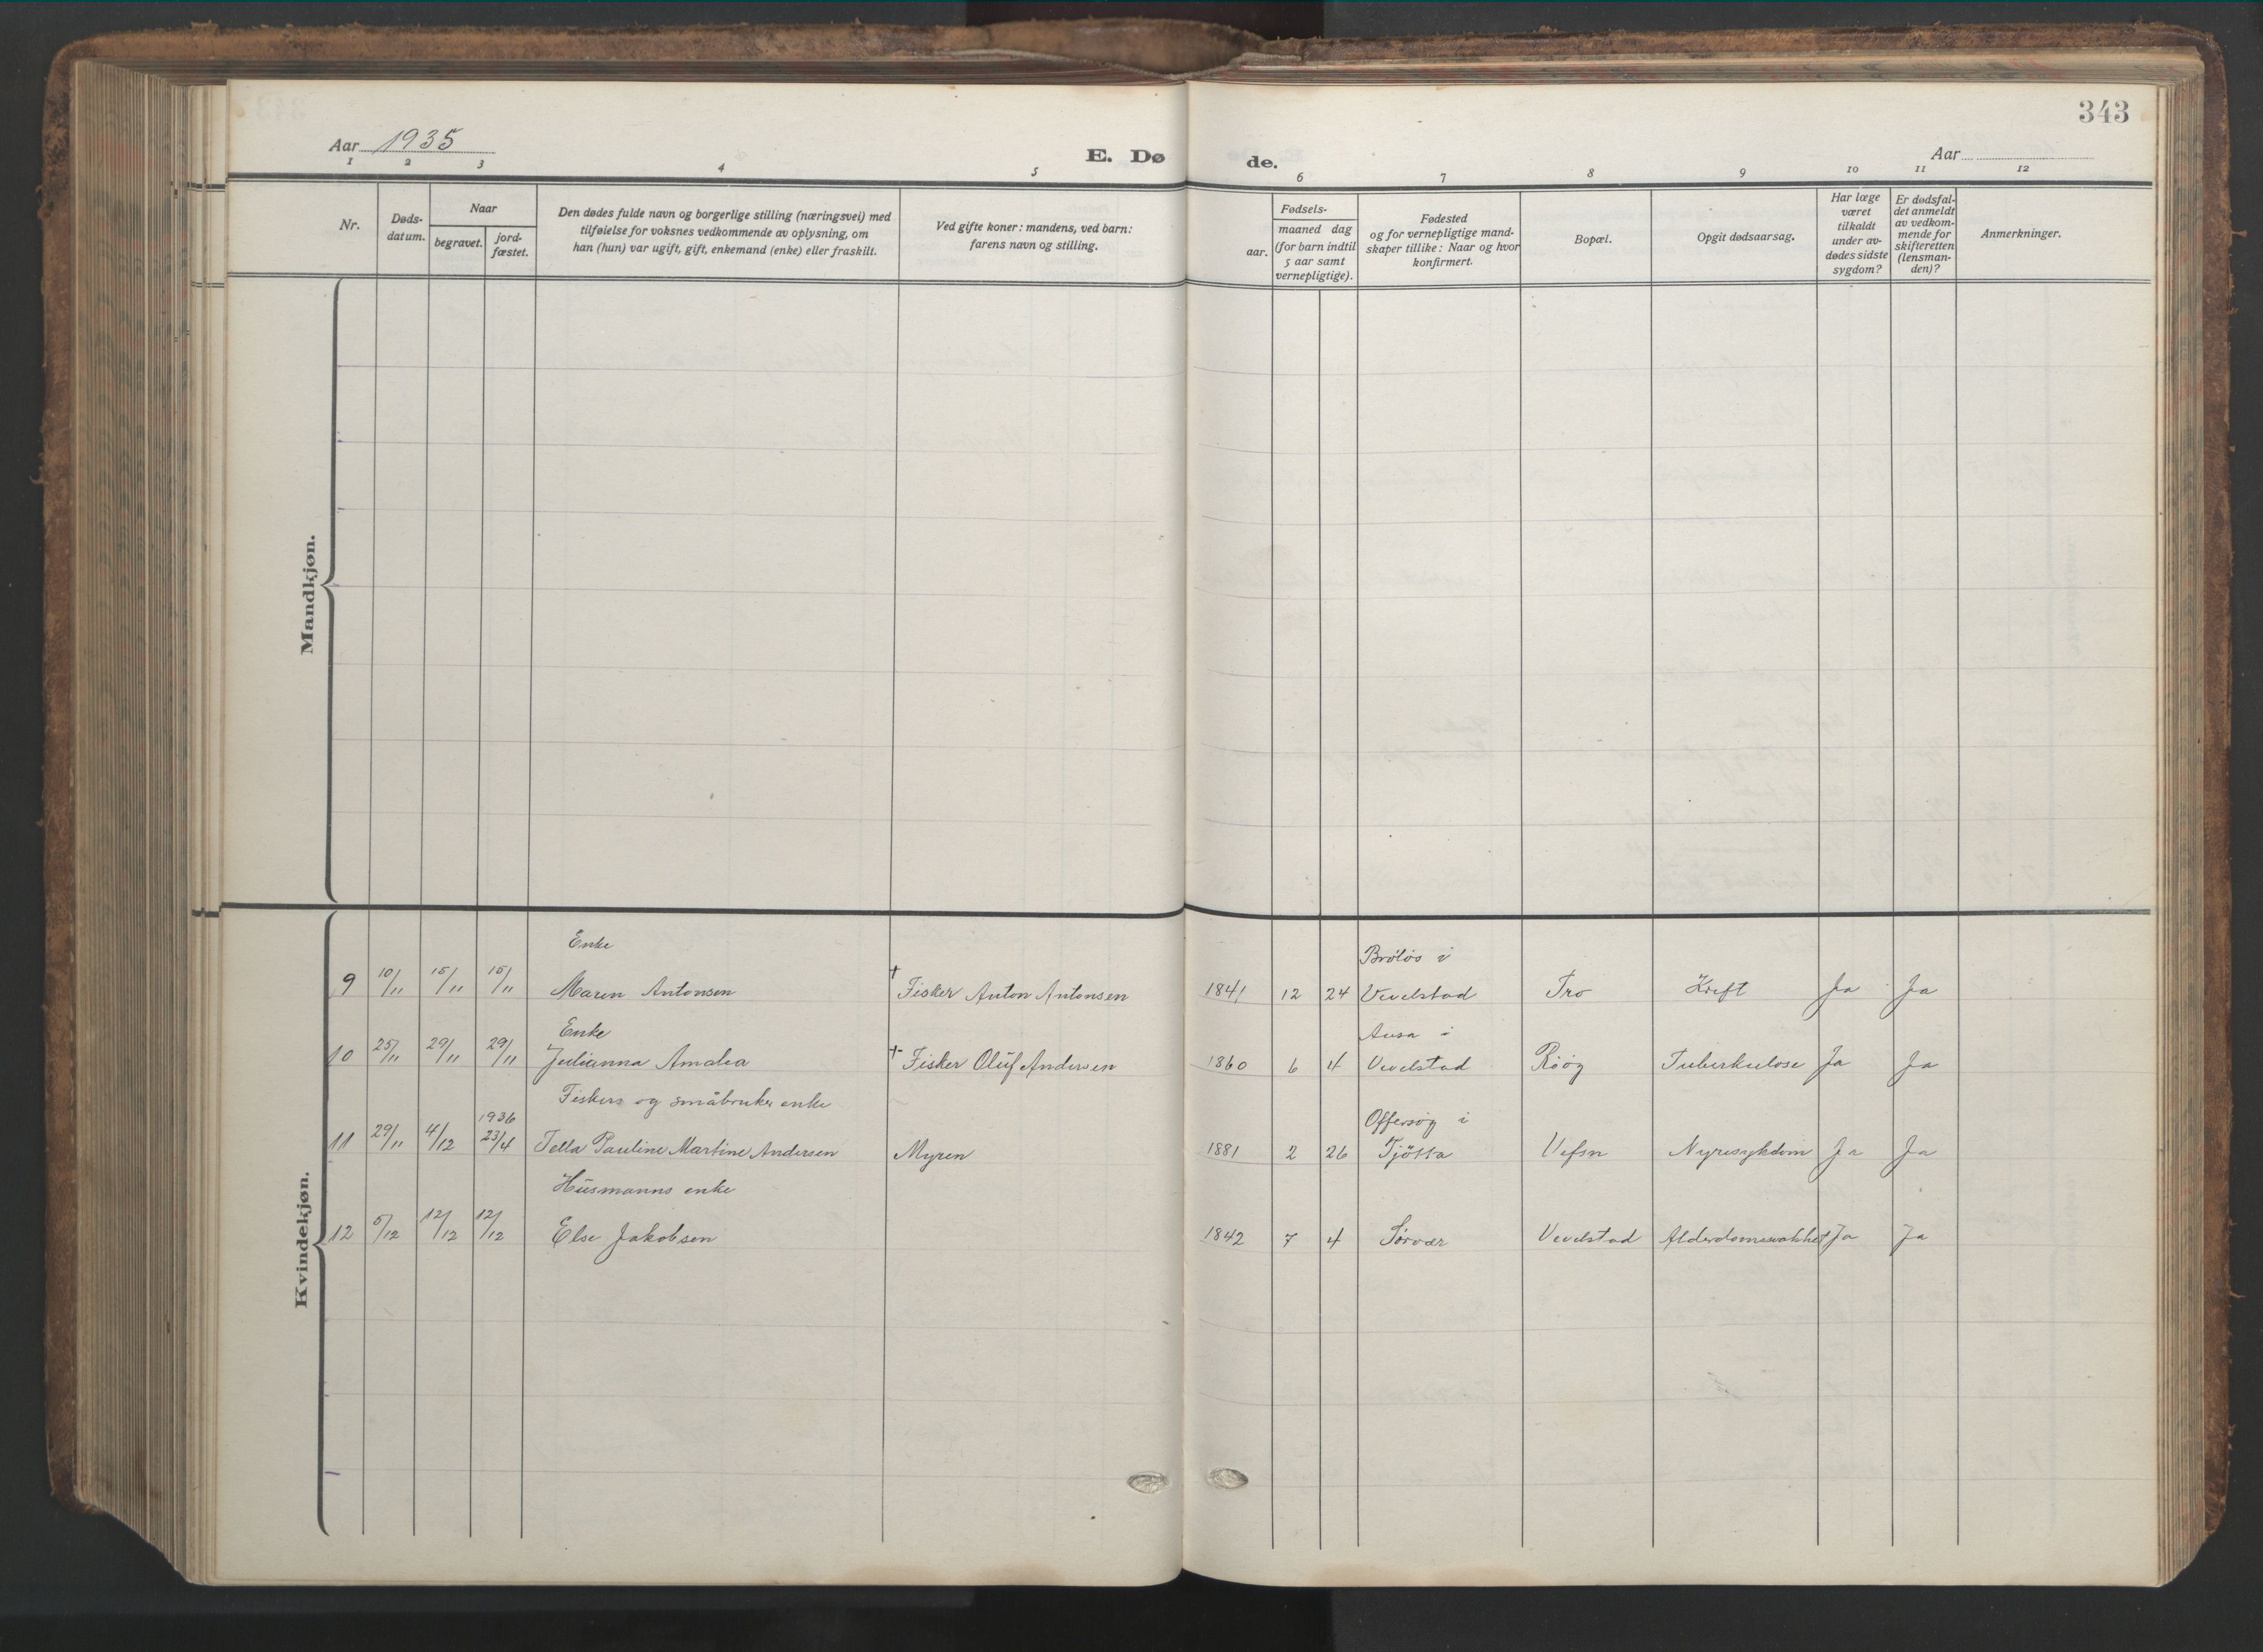 343
Aar 1935
E. Dø de.
Aar
1 2 3 4 5 6 7 8 9 10 11 12
Nr.
Døds-
datum.
Naar
begravet.
jord-
fæstet.
Den dødes fulde navn og borgerlige stilling (næringsvei) med
tilføielse for voksnes vedkommende av oplysning, om
han (hun) var ugift, gift, enkemand (enke) eller fraskilt.
Ved gifte koner: mandens, ved barn:
farens navn og stilling.
Fødsels-
aar.
maaned dag
(for barn indtil
5 aar samt
vernepligtige).
Fødested
og for vernepligtige mand-
skaper tillike: Naar og hvor
konfirmert.
Bopæl.
Opgit dødsaarsag.
Har læge
været
tilkaldt
under av-
dødes sidste
sygdom?
Er dødsfal-
det anmeldt
av vedkom-
mende for
skifteretten
(lensman-
den)?
Anmerkninger.
Mandkjøn.
Kvindekjøn.
Enke Brøløs i
9 10/11 15/11 15/11 Maren Antonsen † Fisker Anton Antonsen 1841 12 24 Vevelstad Tro Kreft Ja Ja
Enke Ausa i
10 25/11 29/11 29/11 Julianna Amalia † Fisker Oluf Andersen 1860 6 4 Vevelstad Røög Tuberkulose Ja Ja
Fiskers og småbruker enke
1936 Offersøy i
11 29/11 4/12 23/4 Tella Pauline Martine Andersen Myren 1881 2 26 Tjötta Vefsn Nyresykdom Ja Ja
Husmanns enke
12 5/12 12/12 12/12 Else Jakobsen 1842 7 4 Sørvær Vevelstad Alderdomssvakhet Ja Ja